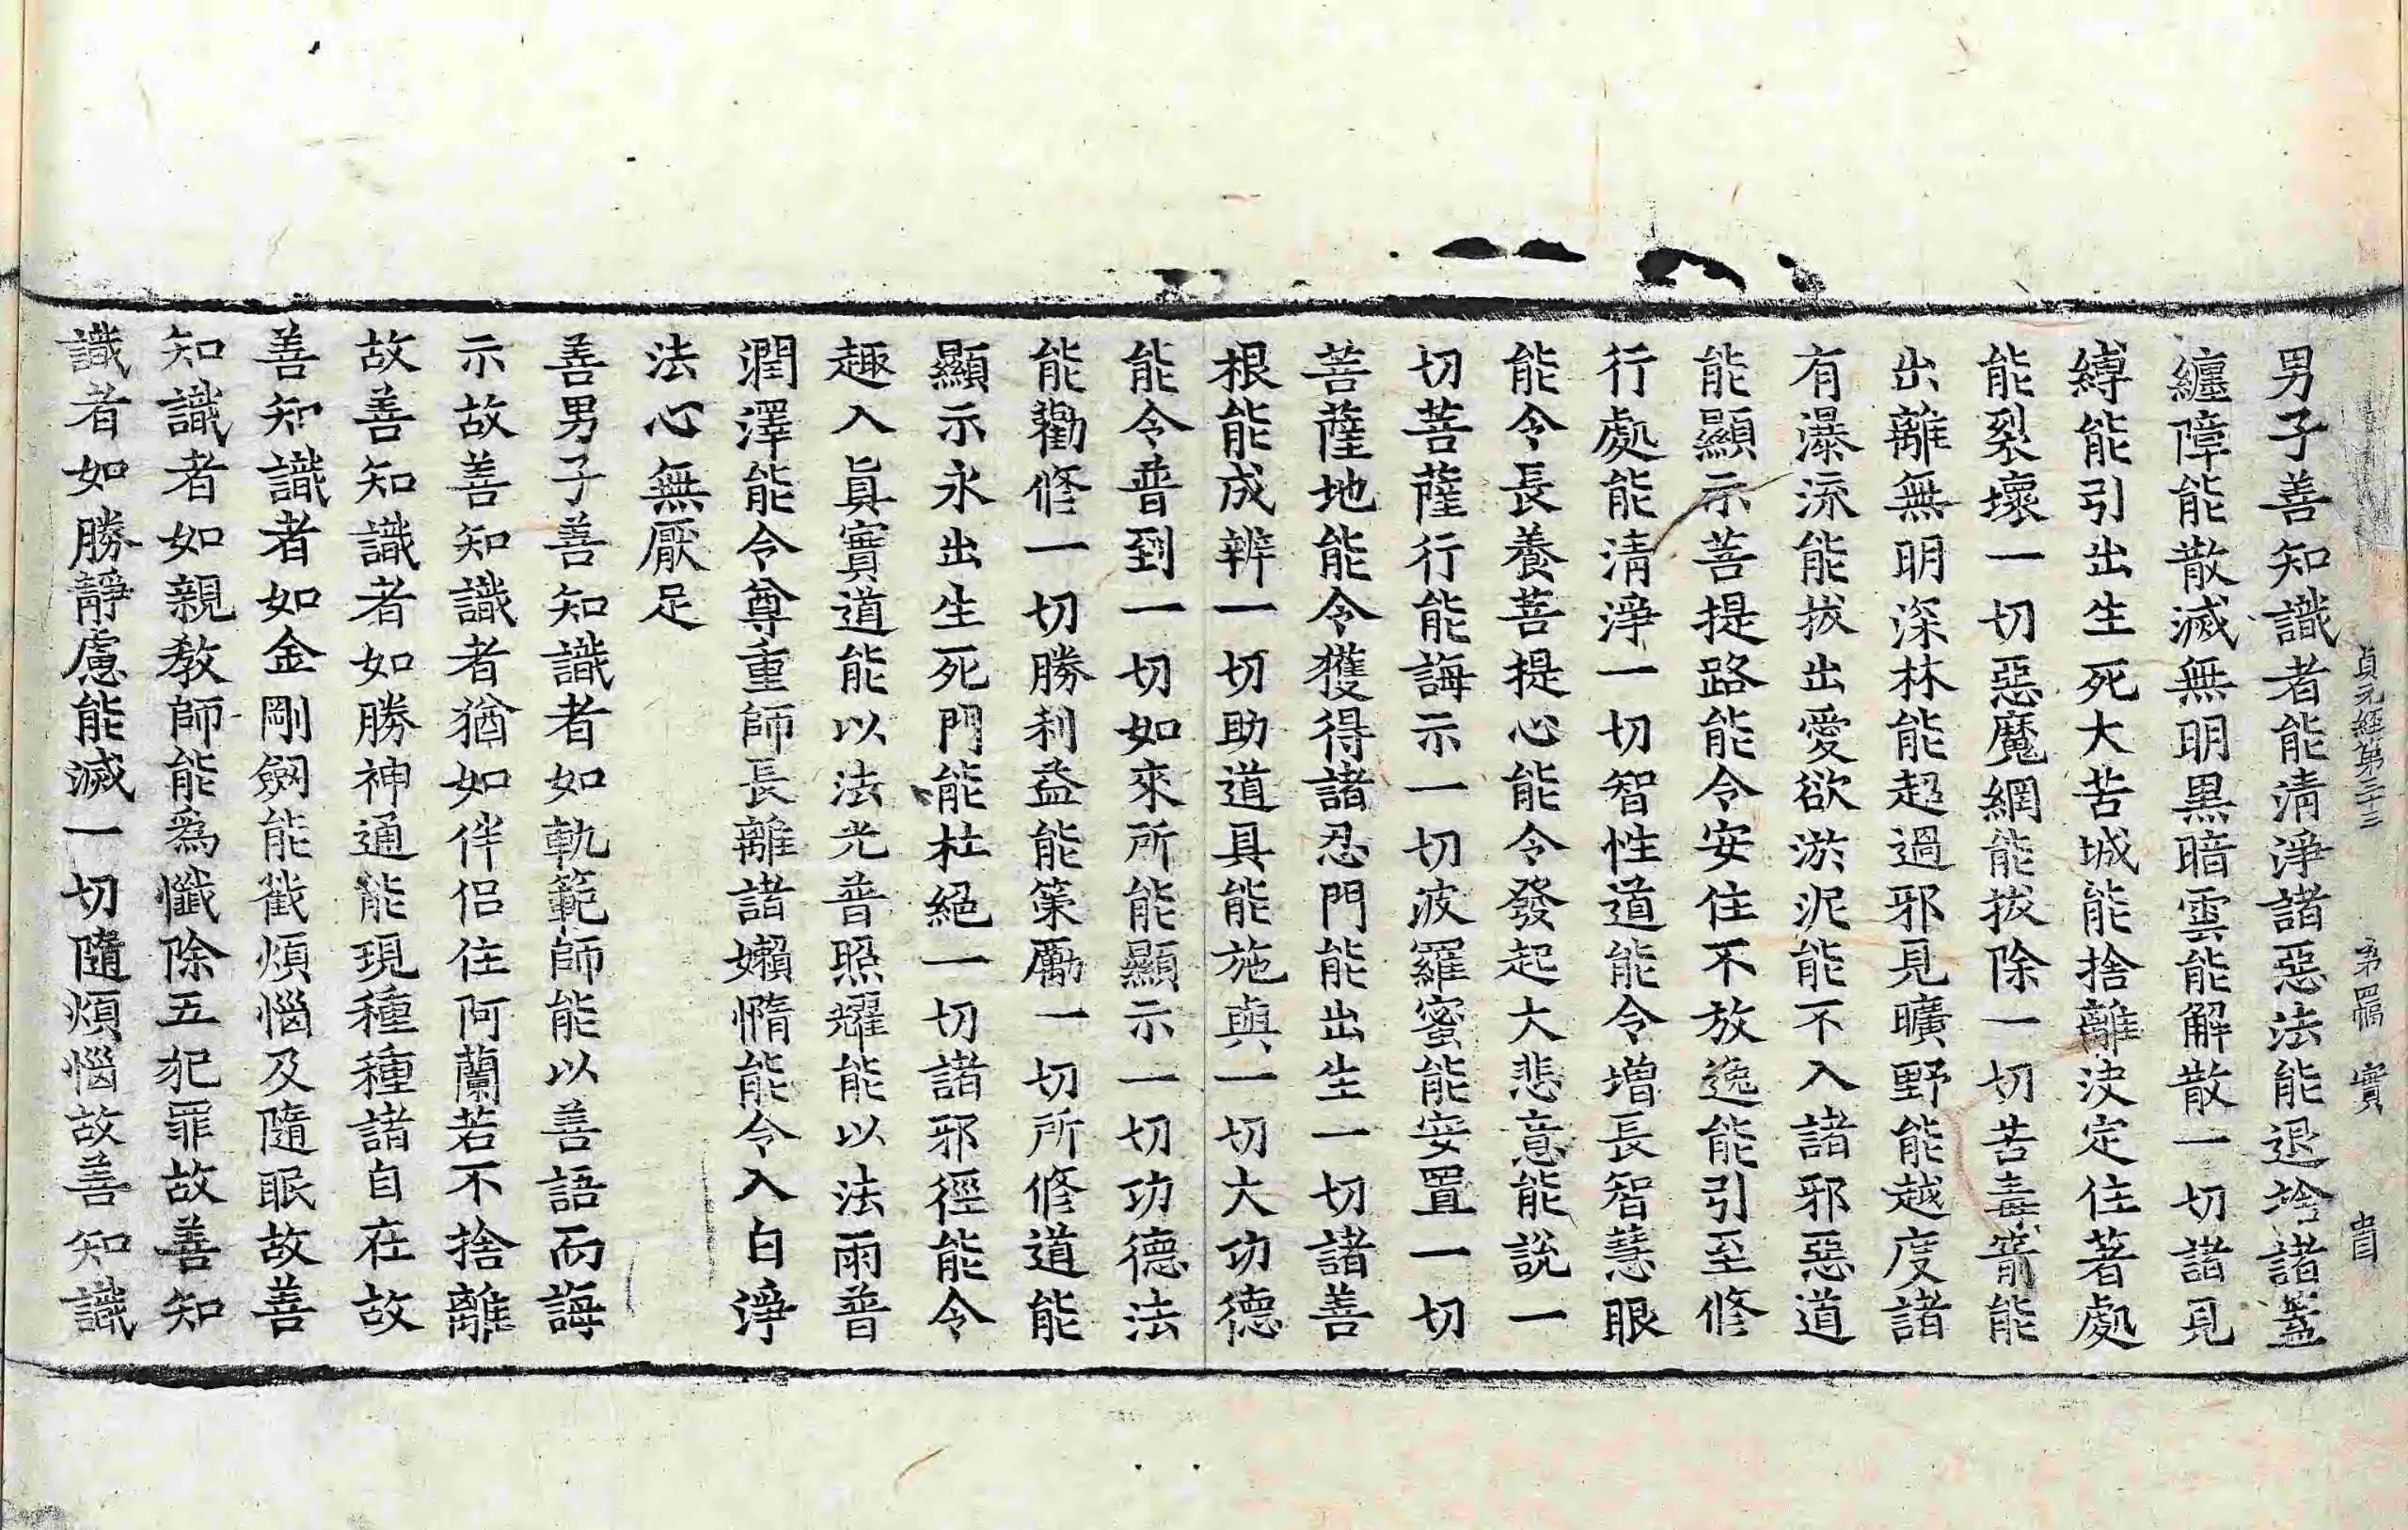 貞元經第三十三 第四幅 實
男子善知識者能淸淨諸惡法能退捨諸蓋
纏障能散滅無明黑暗雲能解散一切諸見
縛能引出生死大苦城能捨離決定住著處
能裂壞一切惡魔網能拔除一切苦毒箭能
出離無明深林能超過邪見曠野能越度諸
有瀑流能拔出愛欲淤泥能不入諸邪惡道
能顯示菩提路能令安住不放逸能引至修
行處能淸淨一切智性道能令增長智慧眼
能令長養菩提心能令發起大悲意能說一
切菩薩行能誨示一切波羅蜜能安置一切
菩薩地能令獲得諸忍門能出生一切諸善
根能成辨一切助道具能施與一切大功德
能令普到一切如來所能顯示一切功德法
能勸修一切勝利益能策勵一切所修道能
顯示永出生死門能杜絕一切諸邪徑能令
趣入眞實道能以法光普照耀能以法雨普
潤澤能令尊重師長離諸嬾惰能令入白淨
法心無厭足
善男子善知識者如軌範師能以善語而誨
示故善知識者猶如伴侶住阿蘭若不捨離
故善知識者如勝神通能現種種諸自在故
善知識者如金剛劔能截煩惱及隨眠故善
知識者如親敎師能爲懺除五犯罪故善知
識者如勝靜慮能滅一切隨煩惱故善知識